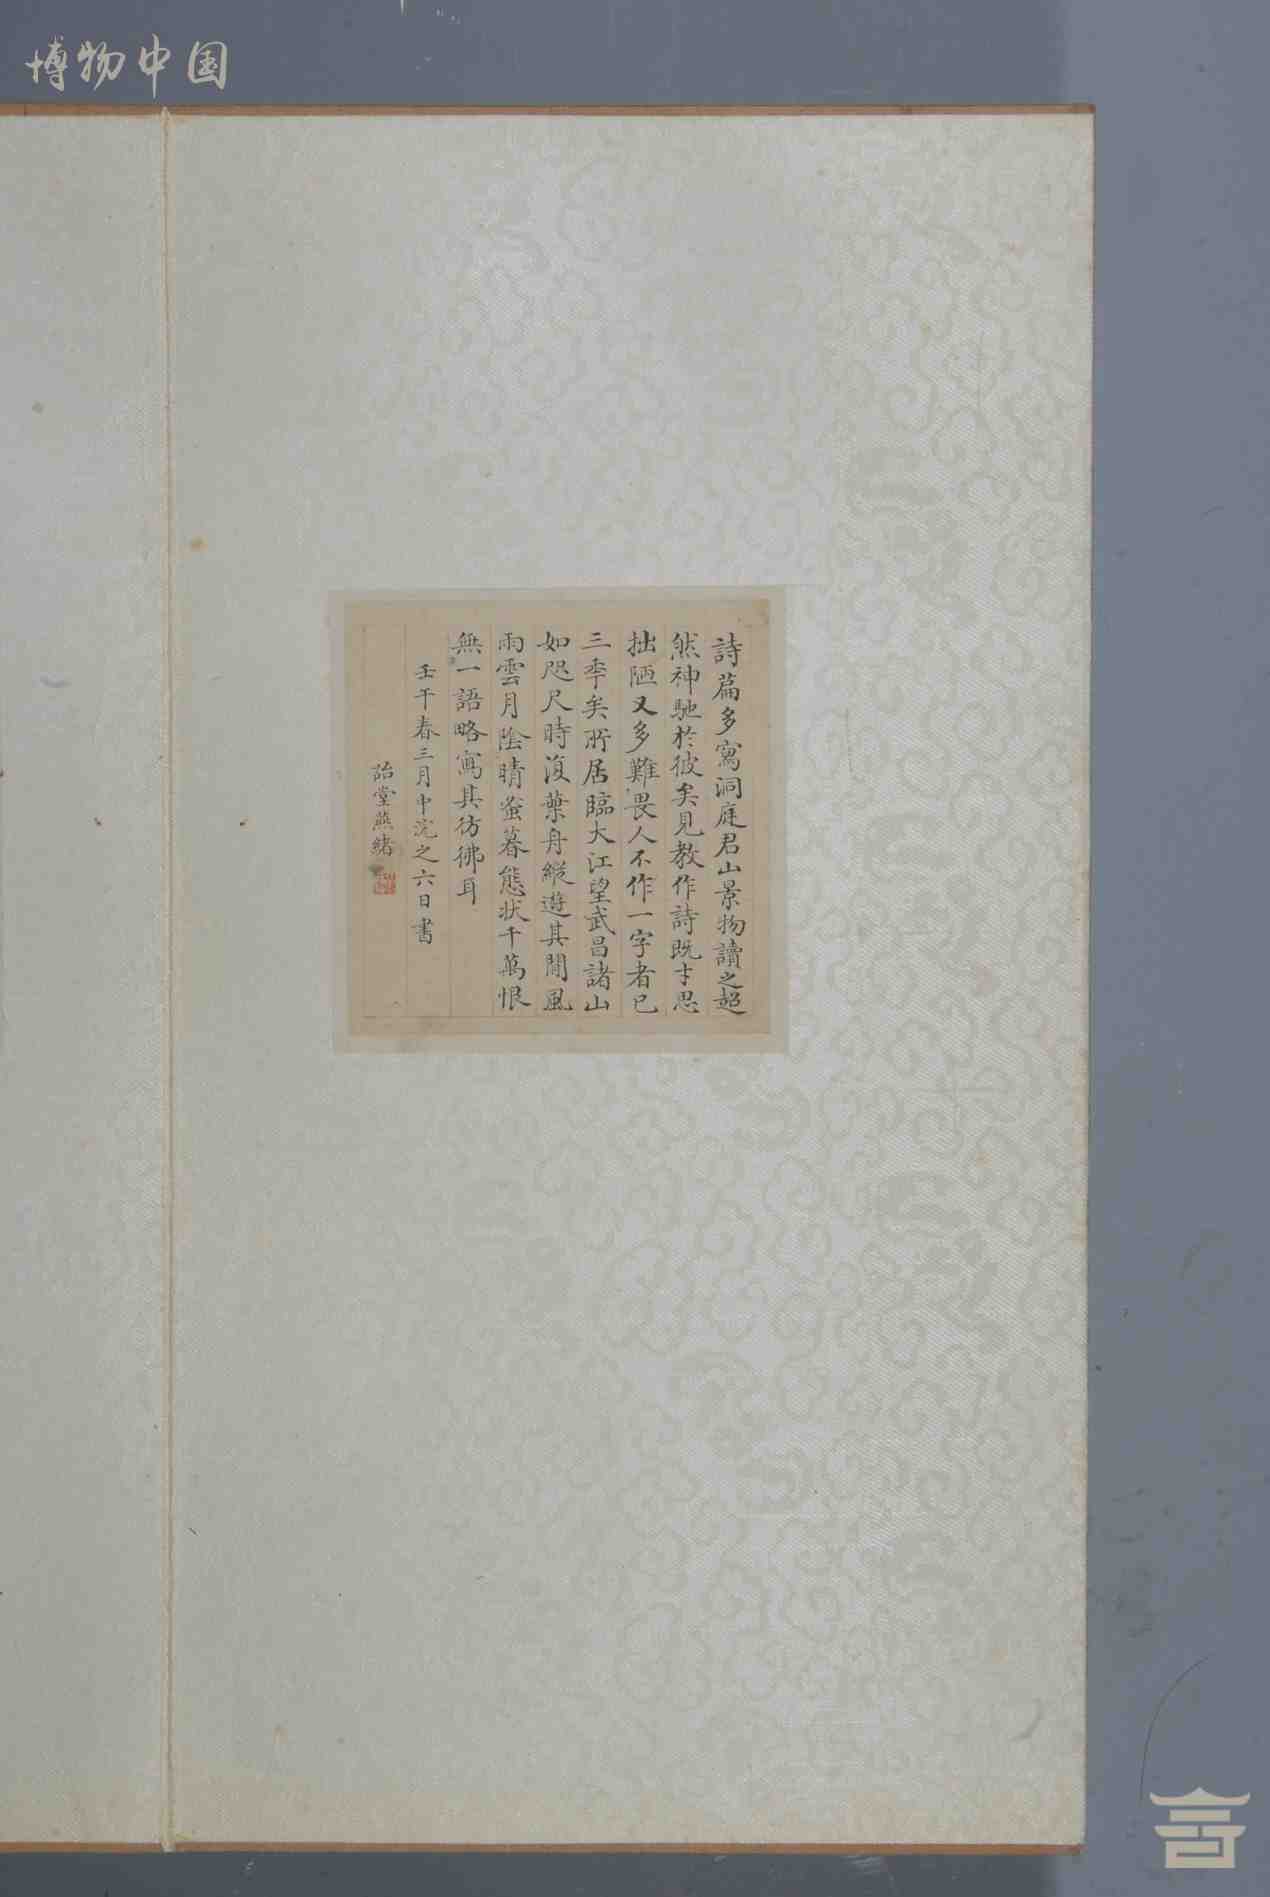 博物中国
詩篇多寫洞庭君山景物讀之超
然神馳於彼矣見教作詩既才思
拙陋又多難畏人不作一字者已
三年矣所居臨大江望武昌諸山
如咫尺時復葉舟縱遊其間風
雨雲月陰晴蚤暮態狀千萬恨
無一語略寫其彷彿耳
壬午春三月中浣之六日書
詒堂燕緒